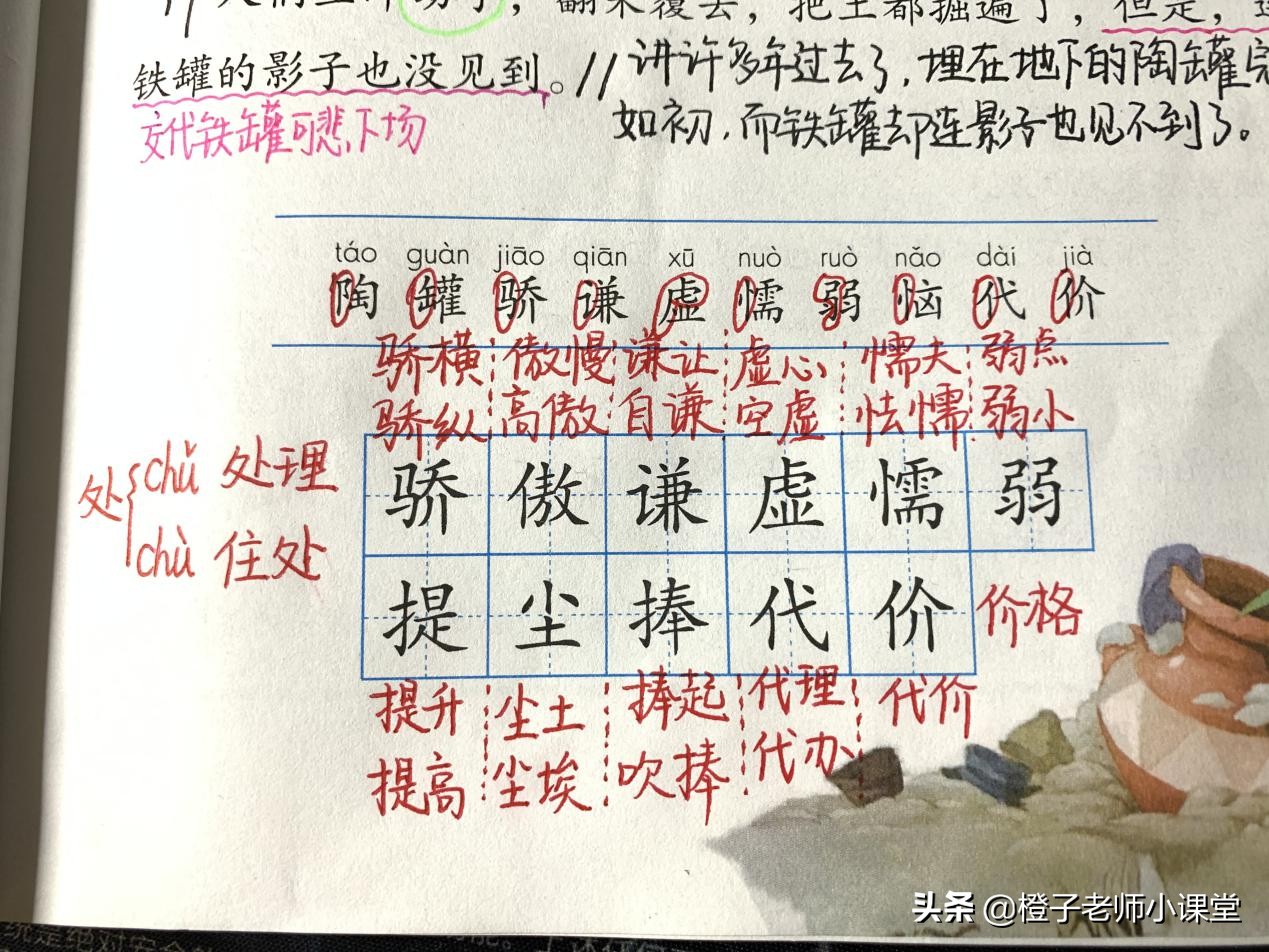 动了，翻来覆去，把土都掘遍了，但是，连
铁罐的影子也没见到。//讲许多年过去了，埋在地下的陶罐完
交代铁罐可悲下场 如初，而铁罐却连影子也见不到了。
táo guàn jiāo qiān xū nuò ruò nǎo dài jià
陶 罐 骄 谦 虚 懦 弱 恼 代 价
骄横 傲慢 谦让 虚心 懦夫 弱点
骄纵 高傲 自谦 空虚 怯懦 弱小
处 chǔ 处理
chù 住处
骄 傲 谦 虚 懦 弱
提 尘 捧 代 价 价格
提升 尘土 捧起 代理 代价
提高 尘埃 吹捧 代办
头条 @橙子老师小课堂